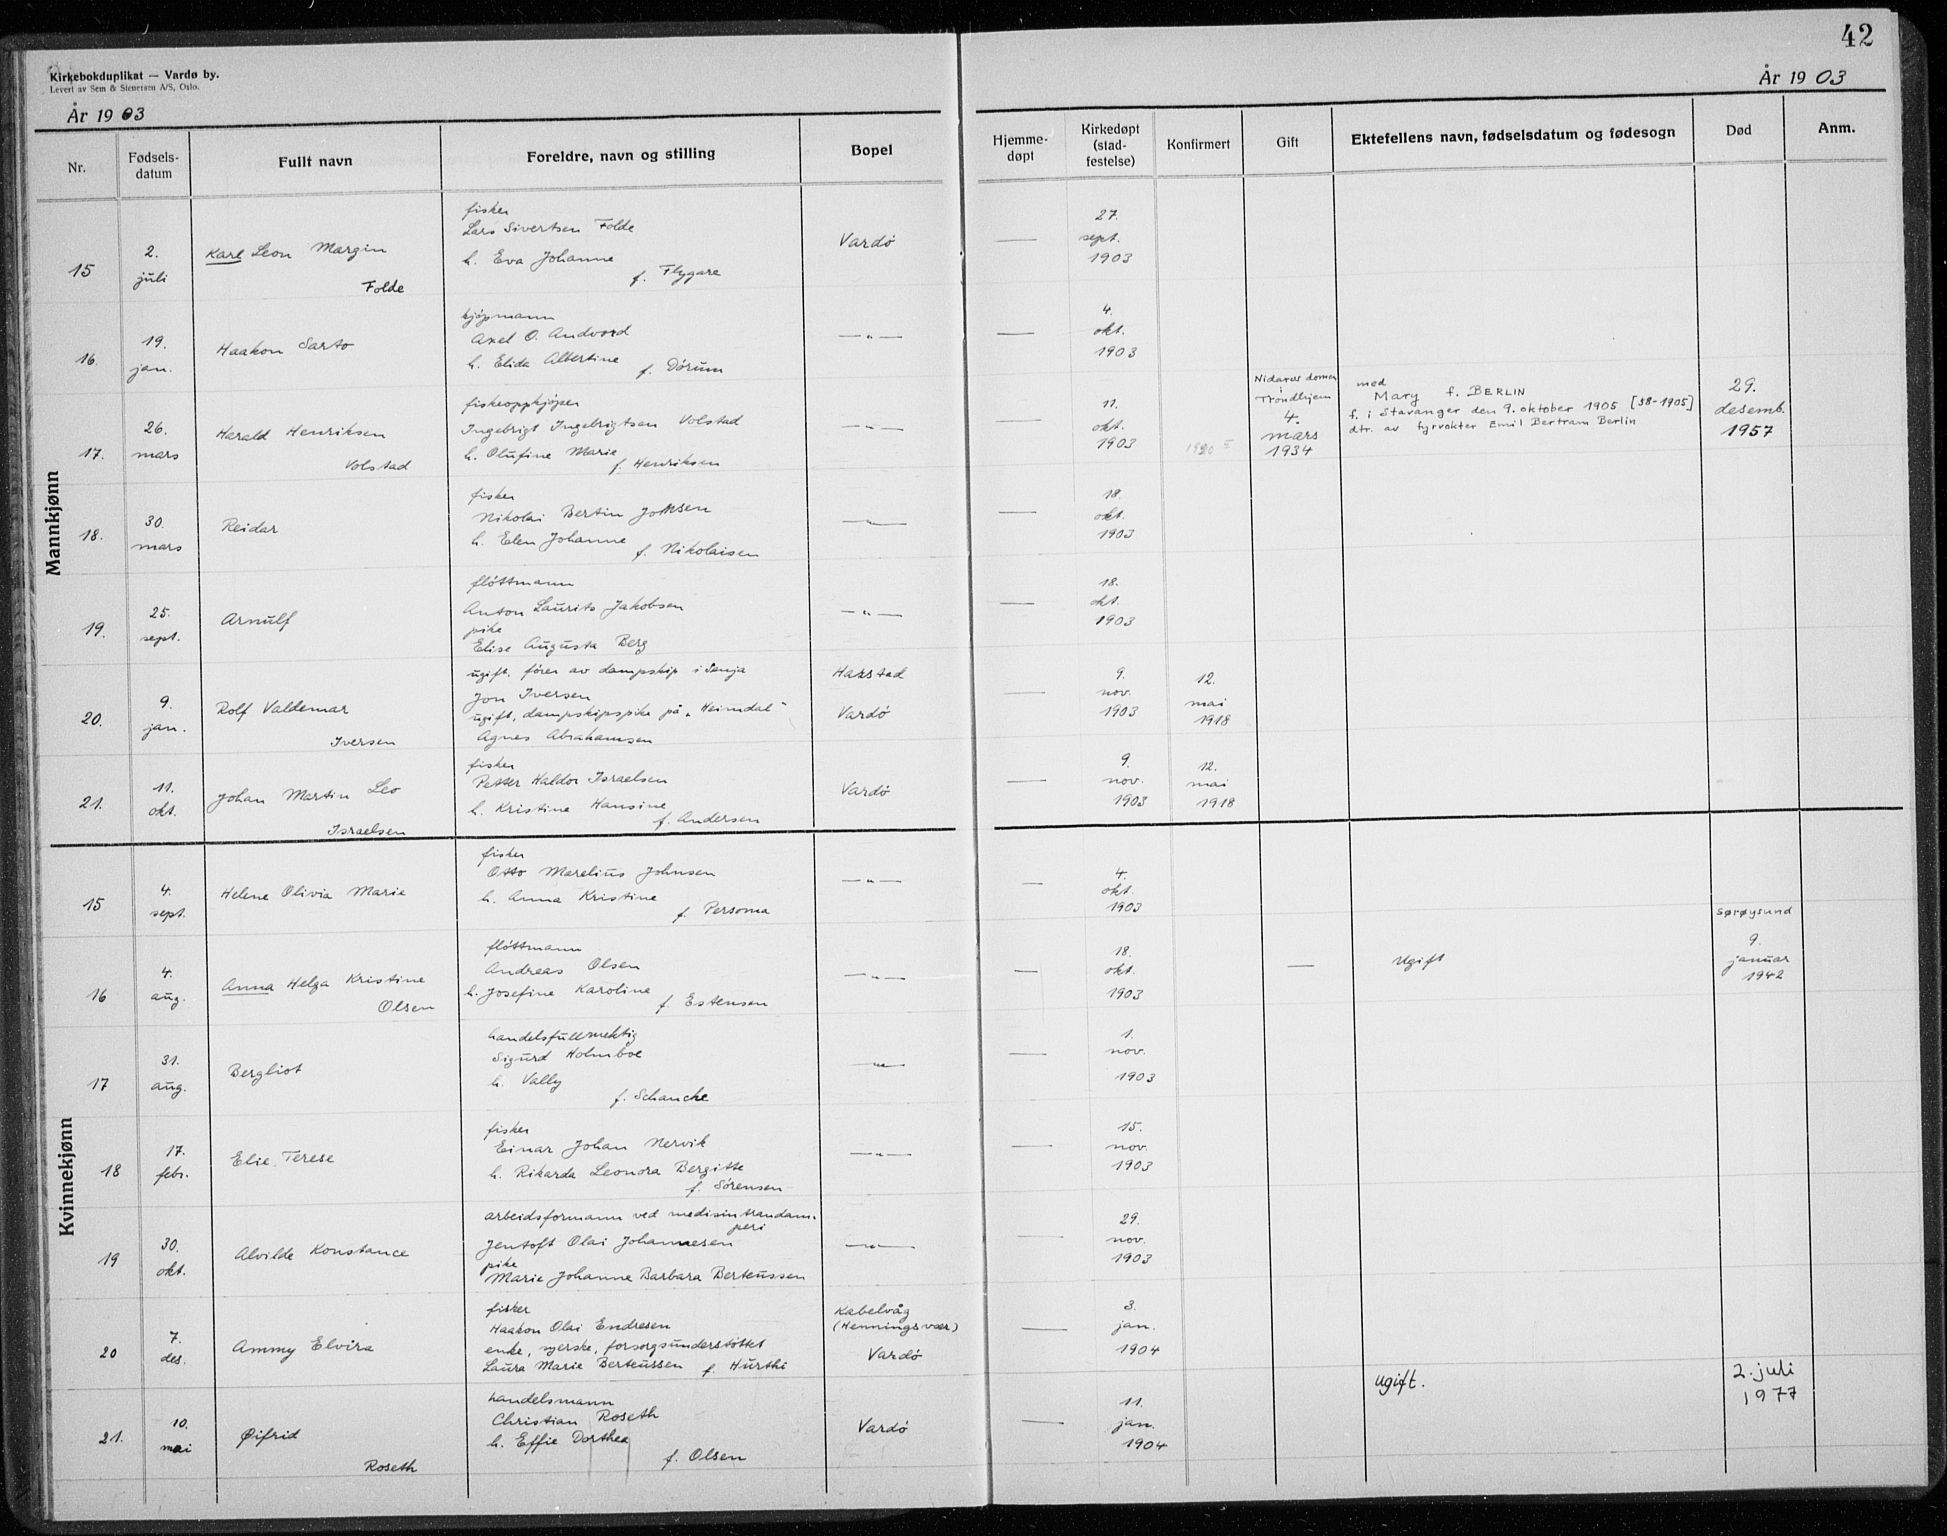 42
Kirkebokduplikat — Vardø by.
Levert av Sem & Stenersen A/S, Oslo.
År 1903
År 1903
Nr.
Fødsels-
datum
Fullt navn
Foreldre, navn og stilling
Bopel
Hjemme-
døpt
Kirkedøpt
(stad-
festelse)
Konfirmert
Gift
Ektefellens navn, fødselsdatum og fødesogn
Død
Anm.
Mannkjønn
15
2.
juli
Karl Leon Margin
Folde
fisker
Lars Sivertsen Folde
h. Eva Johanne
f. Flygare
Vardö
—
27.
sept.
1903
16.
19.
jan.
Haakon Sarto
kjöpmann
Axel O. Andvord
h. Elida Albertine
f. Dörum
— " —
—
4.
okt.
1903
17.
26.
mars
Harald Henriksen
Volstad
fiskeoppkjöper
Ingebrigt Ingebrigtsen Volstad
h. Olufine Marie
f. Henriksen
— " —
—
11.
okt.
1903
Trondhjem
4.
mars
1934
med
Mary f. BERLIN
f. i Stavanger den 9. oktober 1905 [38-1905]
dtr. av fyrvokter Emil Bertram Berlin
29.
desemb.
1957
18.
30.
mars
Reidar
fisker
Nikolai Bertin
h. Elen Johanne
f. Nikolaisen
— " —
—
18.
okt.
1903
19.
25.
sept.
Arnulf
flöttmann
Anton Laurits Jakobsen
pike
Elise Augusta Berg
— " —
—
18.
okt.
1903
20.
9.
jan.
Rolf Valdemar
Iversen
ugift, förer av dampskip i Senja
Jon Iversen
ugift, dampskipspike på „Heimdal"
Agnes Abrahamsen
Harstad
Vardö
—
9.
nov.
1903
12.
mai
1918
21.
11.
okt.
Johan Martin Leo
Israelsen
fisker
Petter Haldor Israelsen
h. Kristine Hansine
f. Andersen
Vardö
—
9.
nov.
1903
12.
mai
1918
Kvinnekjønn
15
4.
sept.
Helene Olivia Marie
fisker
Otto Marelius Johnsen
h. Anna Kristine
f. Persoma
— " —
—
4.
okt.
1903
16
4.
aug.
Anna Helga Kristine
Olsen
flöttmann
Andreas Olsen
h. Josefine Karoline
f. Estensen
— " —
—
18.
okt.
1903
—
Ugift
Sørøysund
9.
januar
1942
17
31.
aug.
Bergliot
handelsfullmektig
Sigurd Holmboe
h. Vally
f. Schancke
— " —
—
1.
nov.
1903
18
17.
febr.
Elie Terese
fisker
Einar Johan Nervik
h. Rikarda Leonora Bergitte
f. Sörensen
— " —
—
15.
nov.
1903
19
30.
okt.
Alvilde Konstance
arbeidsformann ved medisintrandam-
peri
Jentoft Olai Johannesen
pike
Marie Johanne Barbara Berteussen
— " —
—
29.
nov.
1903
20
7.
des.
Ammy Elvira
fisker
Haakon Olai Endresen
enke, syerske, forsorgsunderstöttet
Laura Marie Berteussen f. Hurthi
Kabelvåg
(Henningsvær)
Vardö
—
3.
jan.
1904
21.
10.
mai
Øifrid
Roseth
handelsmann
Christian Roseth
h. Effie Dorthea
f. Olsen
Vardö
—
11.
jan.
1904
ugift.
2. juli
1977